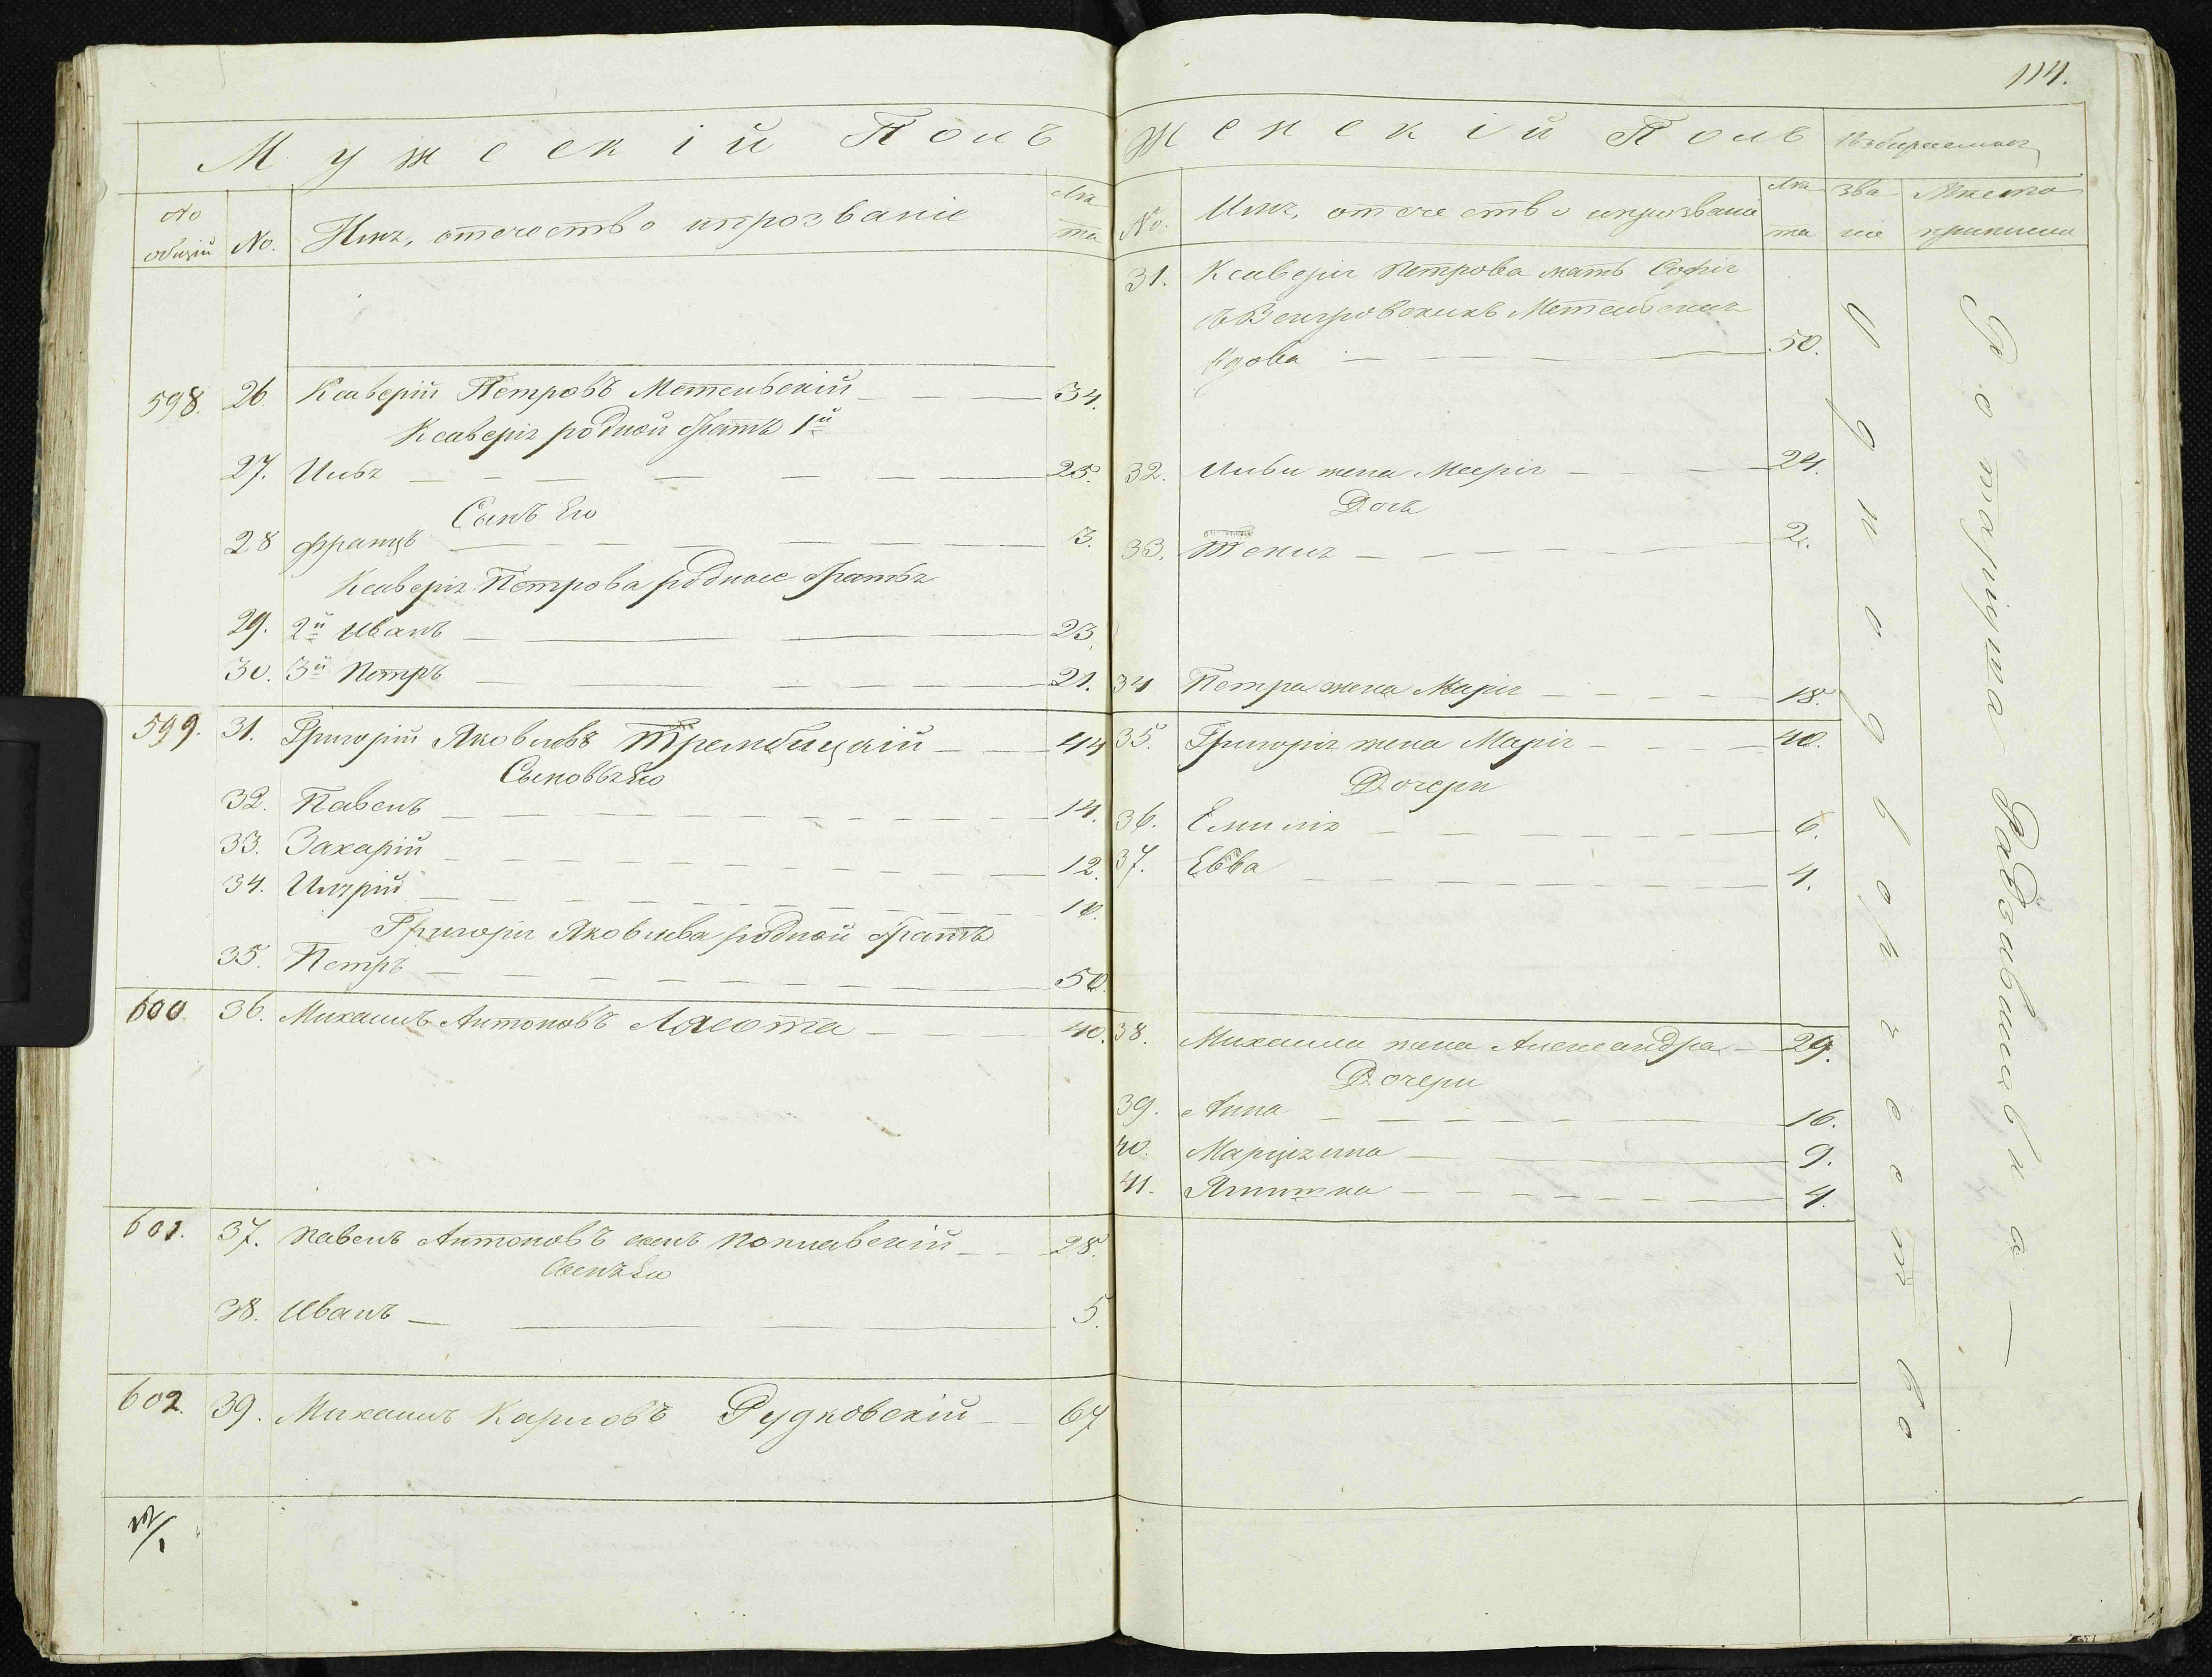 114.
Мужескій Полъ
No общій
No.
Имя, отчество и прозваніе
Лѣта
598. 26. Ксаверій Петровъ Метельскій 34.
Ксаверія родной братъ 1й
27. Илья 25.
Сынъ Его
28 Францъ 3.
Ксаверія Петрова родные братья
29. 2й Иванъ 23.
30. 3й Петръ 21.
599. 31. Григорій Яковлевъ Трембицкій 44
Сыновья Его
32. Павелъ 14.
33. Захарій 12.
34. 10.
Григорія Яковлева родной братъ
35. Петръ 50.
600 36. Михаилъ Антоновъ Лясота 40.
601. 37. Павелъ Антоновъ сынъ Поплавскій 28.
Сынъ Его
38. Иванъ 5.
602. 39. Михаилъ Карловъ Рудковскій 67
Женскій Полъ
Избираемыя
No.
Имя, отчество и прозваніе
Лѣта
Званіе
Мѣсто приписки
31. Ксаверія Петрова мать Софія
Метельская
Вдова 50.
32. Ильи жена Марія 24.
Дочь
33. Текля 2.
34 Петра жена Марія 18.
35. Григорія жена Марія 40.
Дочери
36. Емилія 6.
37. Евва 4.
38. Михаила жена Александра 29.
Дочери
39. Анна 16.
40. Марціянна 9.
41. 4.
Однодворчество